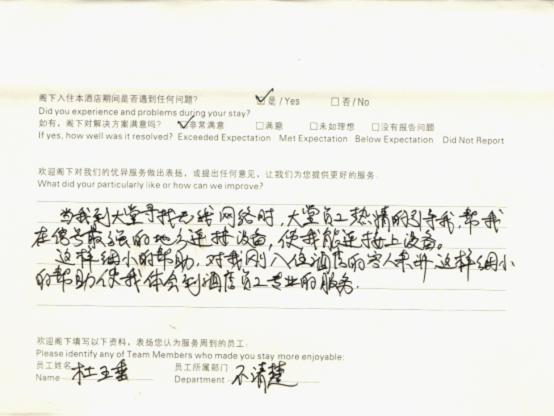 阁下入住本酒店期间是否遇到任何问题? ☑是/Yes □否/No
Did you experience and problems during your stay?
如有,阁下对解决方案满意吗? ☑非常满意 □满意 □未如理想 □没有报告问题
If yes, how well was it resolved? Exceeded Expectation Met Expectation Below Expectation Did Not Report
欢迎阁下对我们的优异服务做出表扬,或提出任何意见,让我们为您提供更好的服务:
What did your particularly like or how can we improve?
当我到大堂寻找无线网络时,大堂员工热情的引导我,帮我
在信号最强的地方连接设备,使我能连接上设备。
这样细小的帮助,对我刚入住酒店的客人来讲,这样细小
的帮助使我体会到酒店员工专业的服务.
欢迎阁下填写以下资料,表扬您认为服务周到的员工:
Please identify any of Team Members who made you stay more enjoyable:
员工姓名 杜玉 员工所属部门 不清楚
Name Department